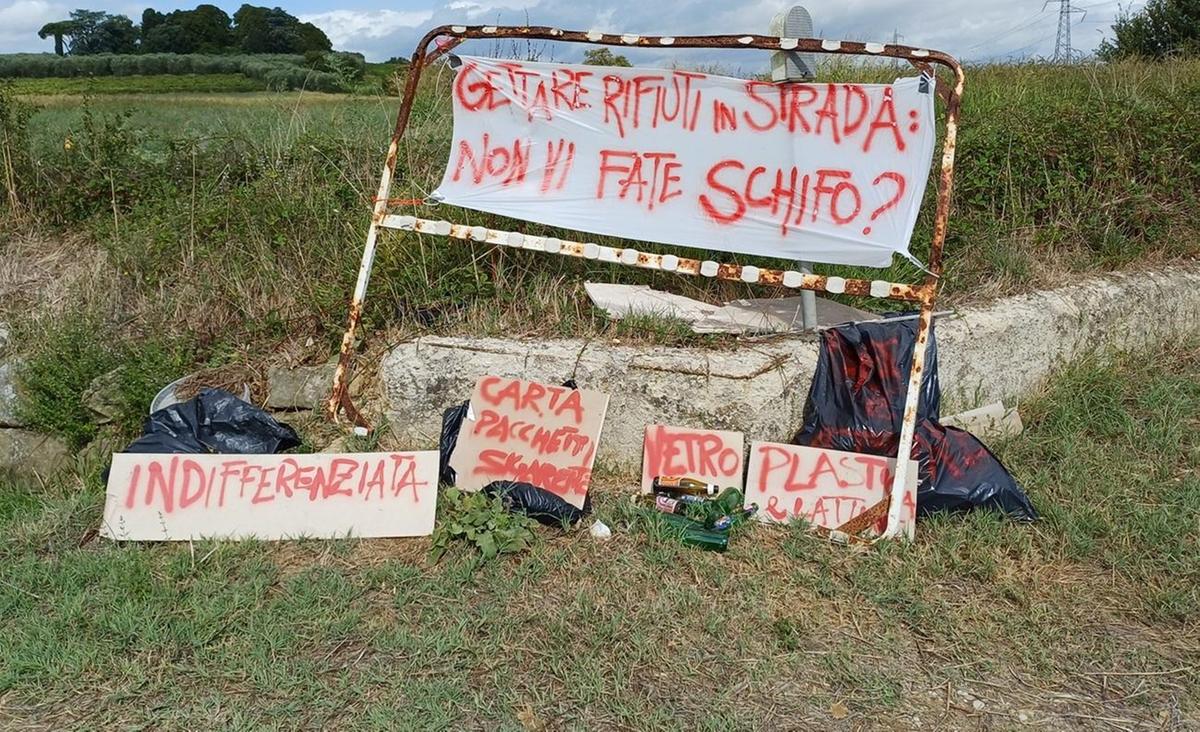 GETTARE RIFIUTI IN STRADA:
NON VI FATE SCHIFO?
INDIFFERENZIATA
CARTA
PACCHETTI
SIGARETTE
VETRO
PLASTICA
& LATTINA